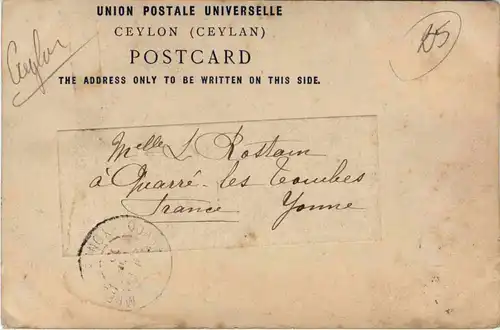 UNION POSTALE UNIVERSELLE
CEYLON (CEYLAN)
POSTCARD
THE ADDRESS ONLY TO BE WRITTEN ON THIS SIDE.
Ceylan
Melle L Rostain
à Quarré-les Tombes
France Yonne